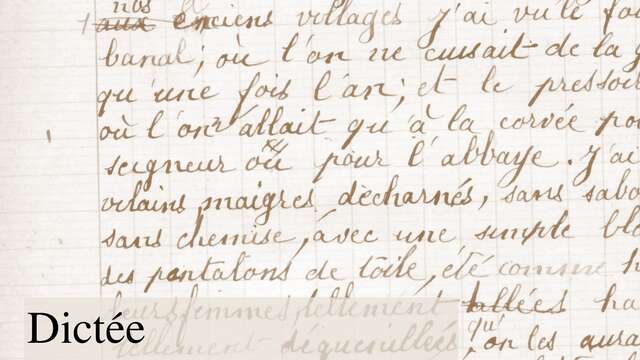 nos
aux anciens villages j'ai vu le fo
banal; où l'on ne cuisait de la g
qu'une fois l'an; et le pressoir
où l'on n'allait qu'à la corvée po
seigneur ou pour l'abbaye. J'ai
vilains maigres décharnés, sans sabo
sans chemise, avec une simple blo
des pantalons de toile, été comme h
leurs femmes, tellement hallées ha
tellement déguenillées, qu'on les aura
Dictée